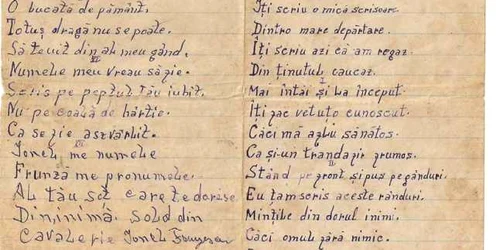 O bucată de pământ.
Totuș dragă nu se poate.
Să te uit din al meu gând.
III
Numele meu vreau să fie.
Scris pe peptul tău iubit.
Nu pe coală de hârtie.
Ca se fie aszvârlit.
Ionel me numele
Frunza me pronumele.
Al tău soț care te dorește
Din inimă. Sold din
Cavalerie Ionel
Iți scriu o mică scrisoare.
Dintro mare depărtare.
Îți scriu azi că am regaz
Din ținutul caucaz.
Mai întăi și la început.
Iți fac vetuto cunoscut.
Căci mă aflu sănătos.
Ca și-un trandafir frumos.
Stând pe front și pus pe gânduri.
Eu țam scris aceste rânduri.
Mințile din dorul inimi.
Căci omul fără nimic.